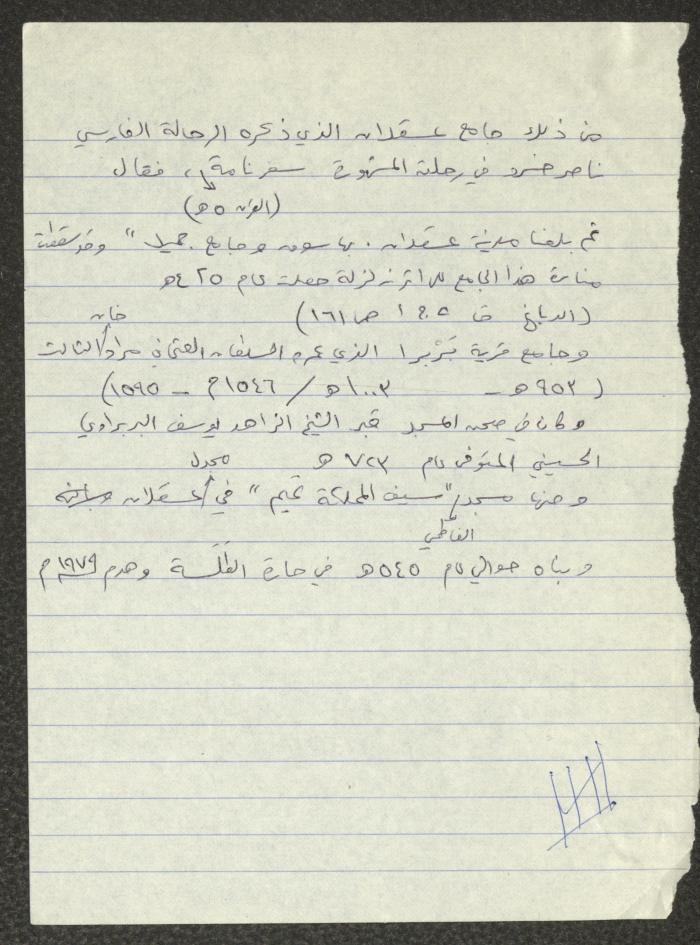 من ذلك جامع عسقلان الذي ذكره الرحالة الفارسي
ناصر خسرو في رحلته المشهورة سفرنامة، فقال
(القرن ٥ هـ)
ثم بلغنا مدينة عسقلان. بها سوق وجامع جميل" وقد سقطت
منارة هذا الجامع اثر زلزلة حصلت عام ٤٢٥ هـ
(الدباغ ق ٥ ج ١ ص ١٦١)
خان
وجامع قرية بَرْبرا الذي عمره السلطان العثماني مراد الثالث
(٩٥٣ هـ - ١٠٠٣ هـ / ١٥٤٦ م - ١٥٩٥)
وكان في صحن المسجد قبر الشيخ الزاهد يوسف البربراوي
الحسيني المتوفى عام ٧٢٣ هـ
مجدل
ومنها مسجد "سيف المملكة تميم" في عسقلان
الفاطمي
وبناه حوالي عام ٥٤٥ هـ في حارة الفَلْسة وهدم ١٩٧٩ م